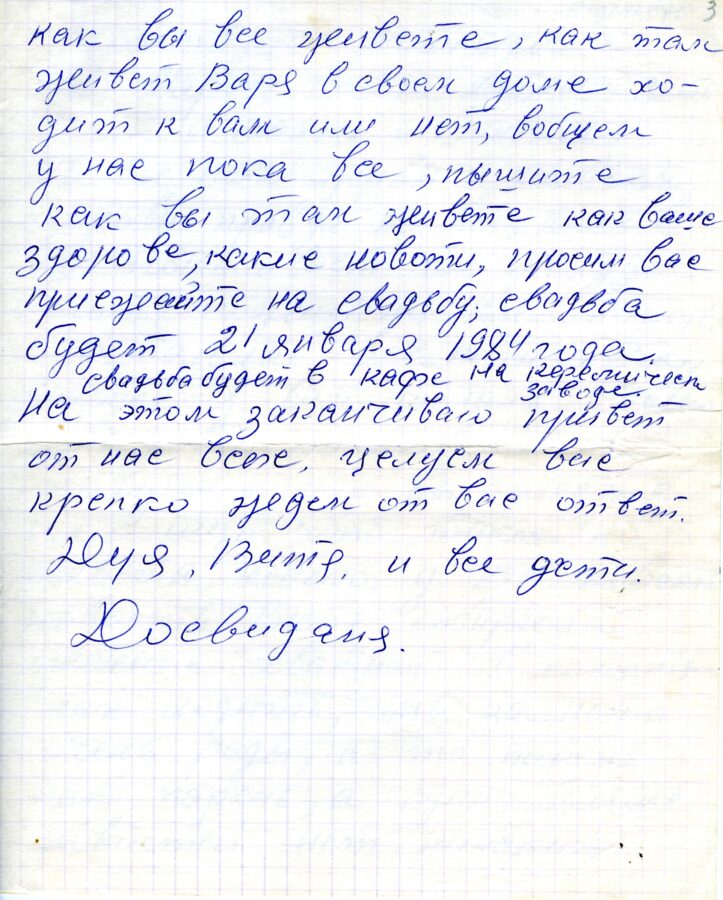 3
как вы все живете, как там
живет Варя в своем доме хо-
дит к вам или нет, вобщем
у нас пока все, пышите
как вы там живете как ваше
здорове, какие новоти, просим вас
приежайте на свадьбу, свадьба
будет 21 января 1984 года.
свадьба будет в кафе на керамическ
заводе.
На этом заканчиваю привет
от нас всех, целуем вас
крепко ждем от вас ответ.
Дуя, Витя, и все дети.
Досвиданя.